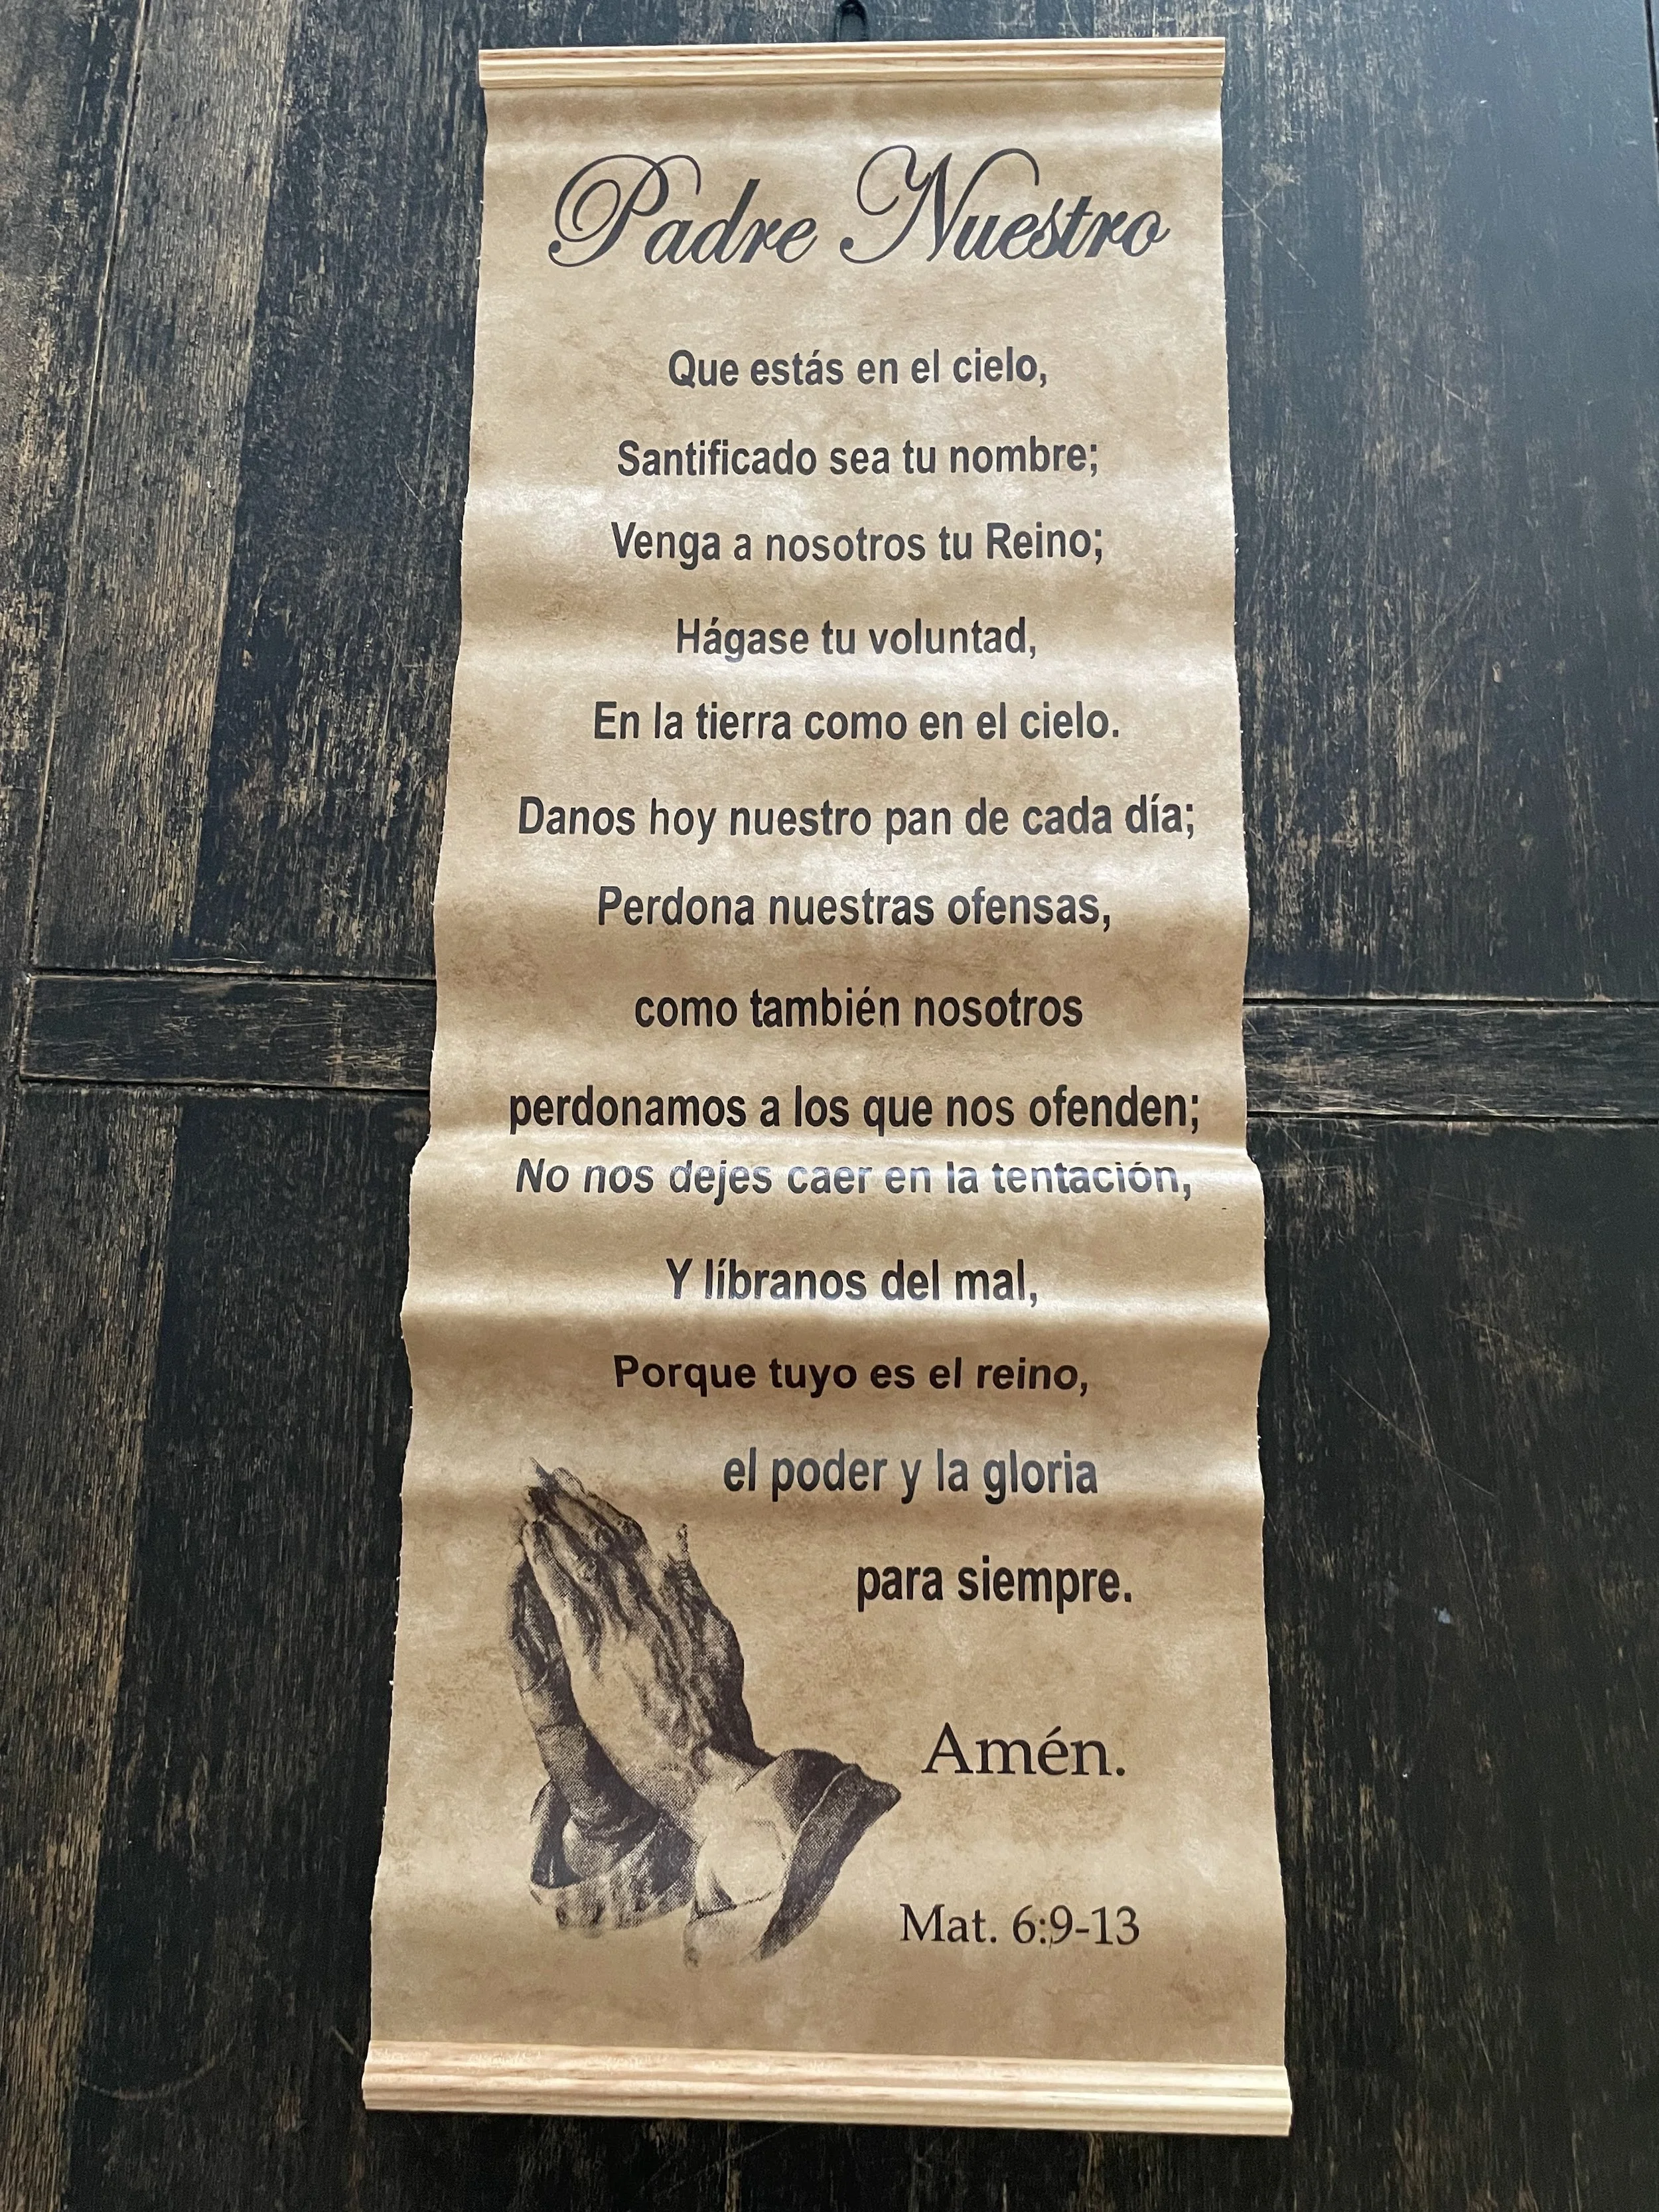 Padre Nuestro
Que estás en el cielo,
Santificado sea tu nombre;
Venga a nosotros tu Reino;
Hágase tu voluntad,
En la tierra como en el cielo.
Danos hoy nuestro pan de cada día;
Perdona nuestras ofensas,
como también nosotros
perdonamos a los que nos ofenden;
No nos dejes caer en la tentación,
Y líbranos del mal,
Porque tuyo es el reino,
el poder y la gloria
para siempre.
Amén.
Mat. 6:9-13